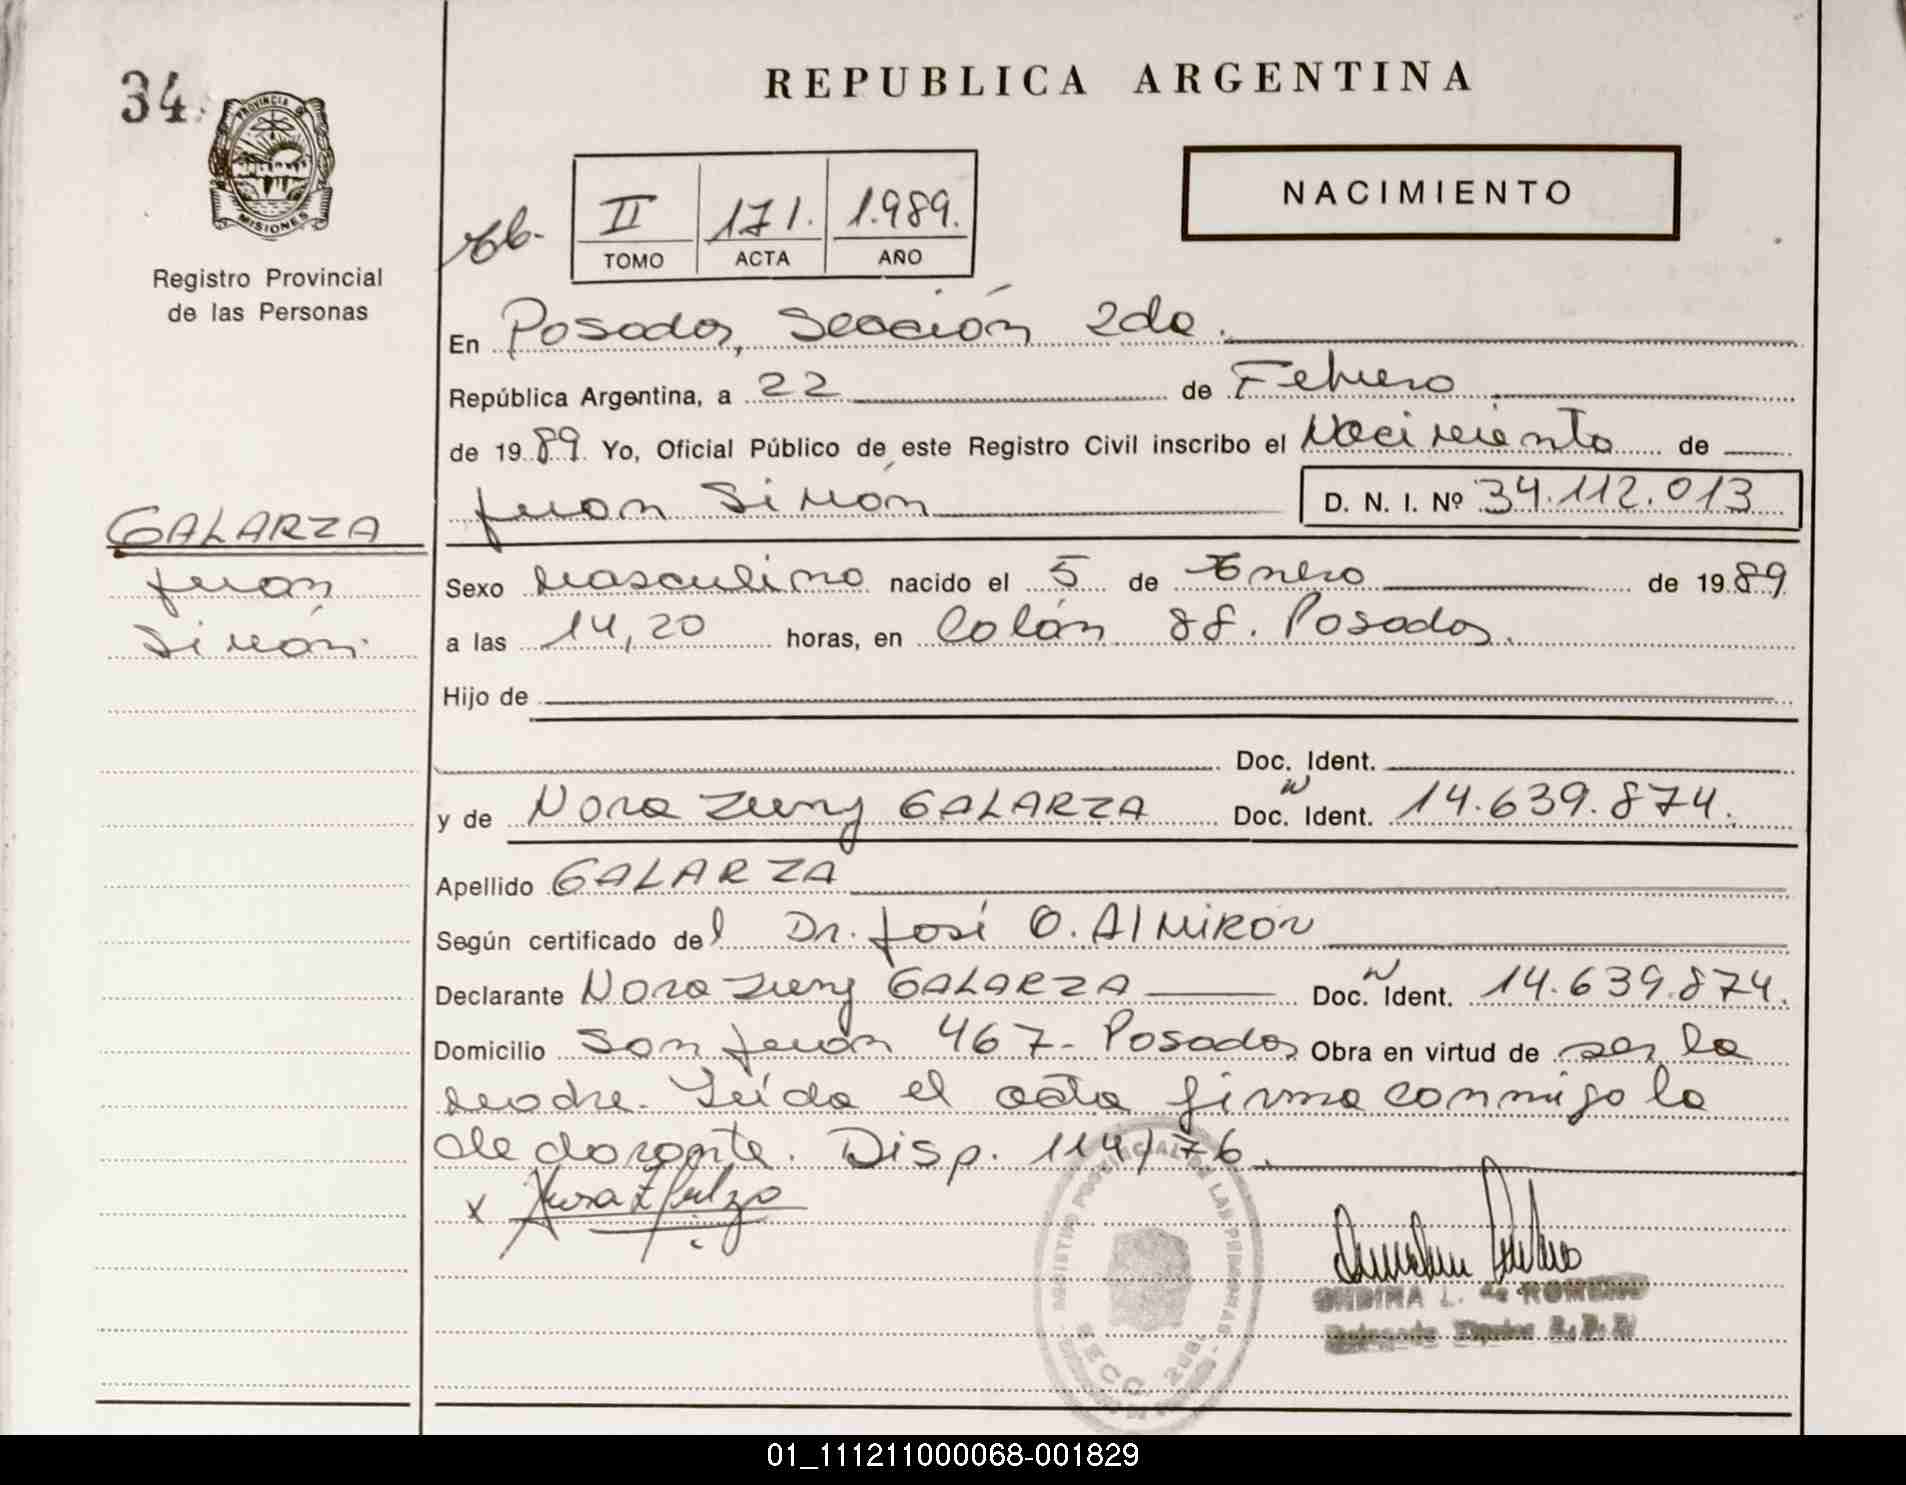 34.
PROVINCIA DE
MISIONES
Registro Provincial
de las Personas
REPUBLICA ARGENTINA
NACIMIENTO
II 171. 1.989.
TOMO ACTA AÑO
En Posadas, Sección 2da.
República Argentina, a 22 de Febrero
de 1989 Yo, Oficial Público de este Registro Civil inscribo el Nacimiento de
Juan Simón D. N. I. Nº 34.112.013
GALARZA
Juan
Simón.
Sexo masculino nacido el 5 de Enero de 1989
a las 14,20 horas, en Colón 88. Posadas.
Hijo de
Doc. Ident.
y de Nora Zuny GALARZA Doc. Ident. 14.639.874.
Apellido GALARZA
Según certificado del Dr. José O. AlMIRON
Declarante Nora Zuny GALARZA Doc. Ident. 14.639.874.
Domicilio San Juan 467- Posadas Obra en virtud de ser la
madre. Leída el acta firma conmigo la
declarante. Disp. 114/76.
x
REGISTRO PROVINCIAL DE LAS PERSONAS
SECC. 2da.
ONDINA L. de ROMERO
01_111211000068-001829